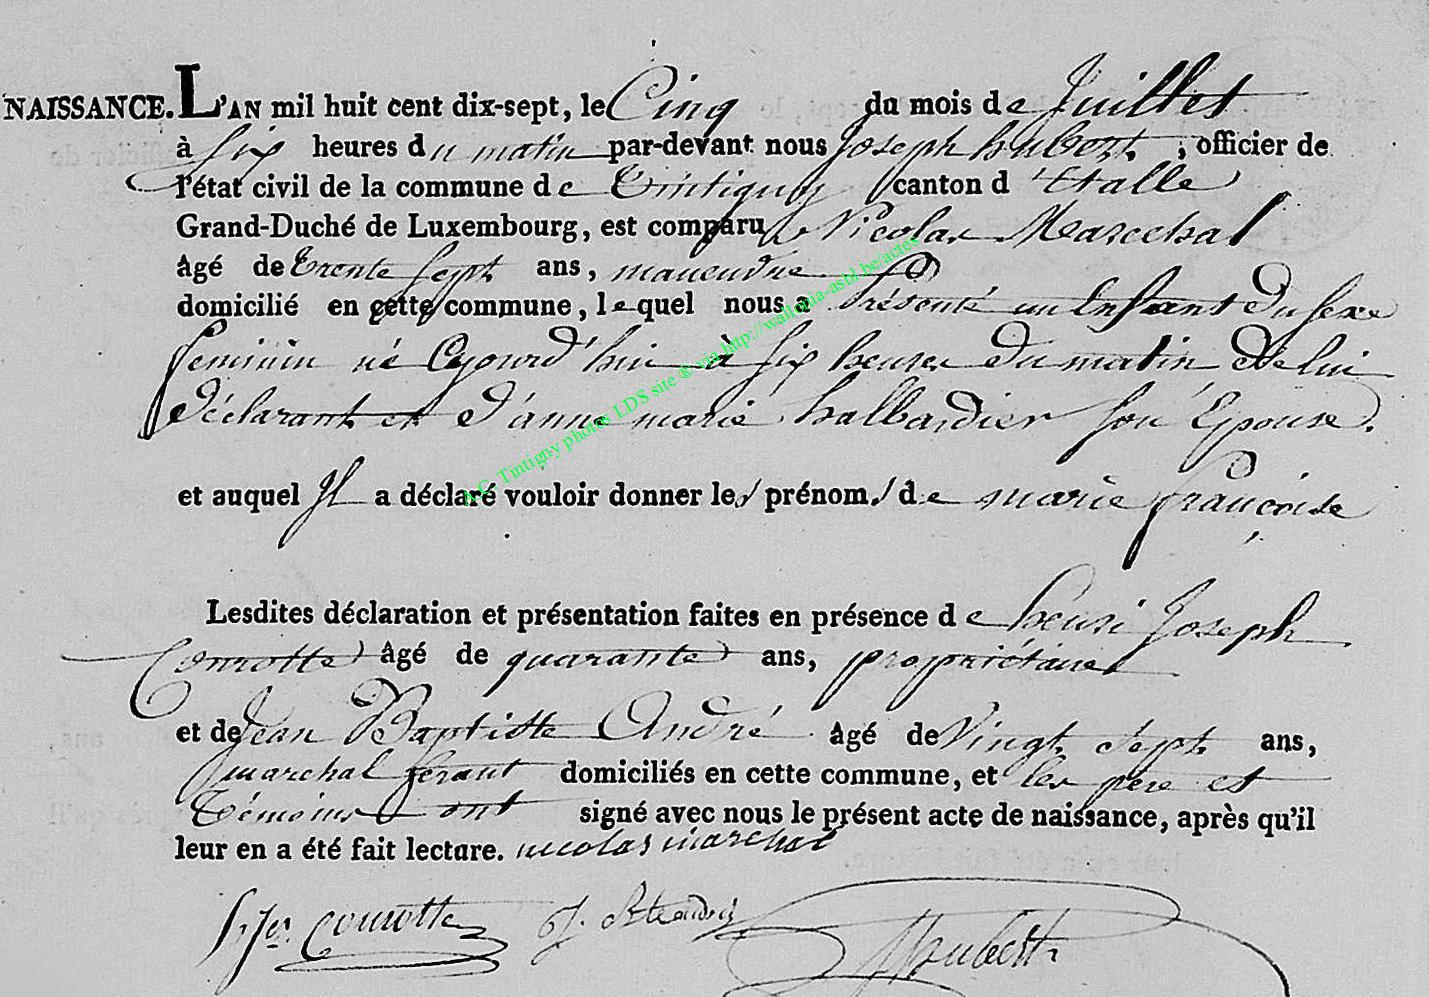 NAISSANCE. L'AN mil huit cent dix-sept, le Cinq du mois de Juillet
à Six heures du matin par-devant nous Joseph hubert, officier de
l'état civil de la commune de Tintigny canton d'Etalle
Grand-Duché de Luxembourg, est comparu Nicolas Marechal
âgé de trente sept ans, maneuvre
domicilié en cette commune, lequel nous a présenté un Enfant Du sexe
feminin né Cejourd'hui à six heures Du matin De lui
Déclarant et D'anne marie halbardier son Epouse.
et auquel Il a déclaré vouloir donner les prénoms de marie françoise
Lesdites déclaration et présentation faites en présence de henri Joseph
Connotte âgé de quarante ans, propriétaire
et de Jean Baptiste André âgé de Vingt Sept ans,
marchal ferant domiciliés en cette commune, et les pere et
Témoins ont signé avec nous le présent acte de naissance, après qu'il
leur en a été fait lecture. nicolas marchal
h. Jos. Connotte J. Bte andré Hubert
A.C. Tintigny photos LDS site & via http://wallonia-asbl.be/actes